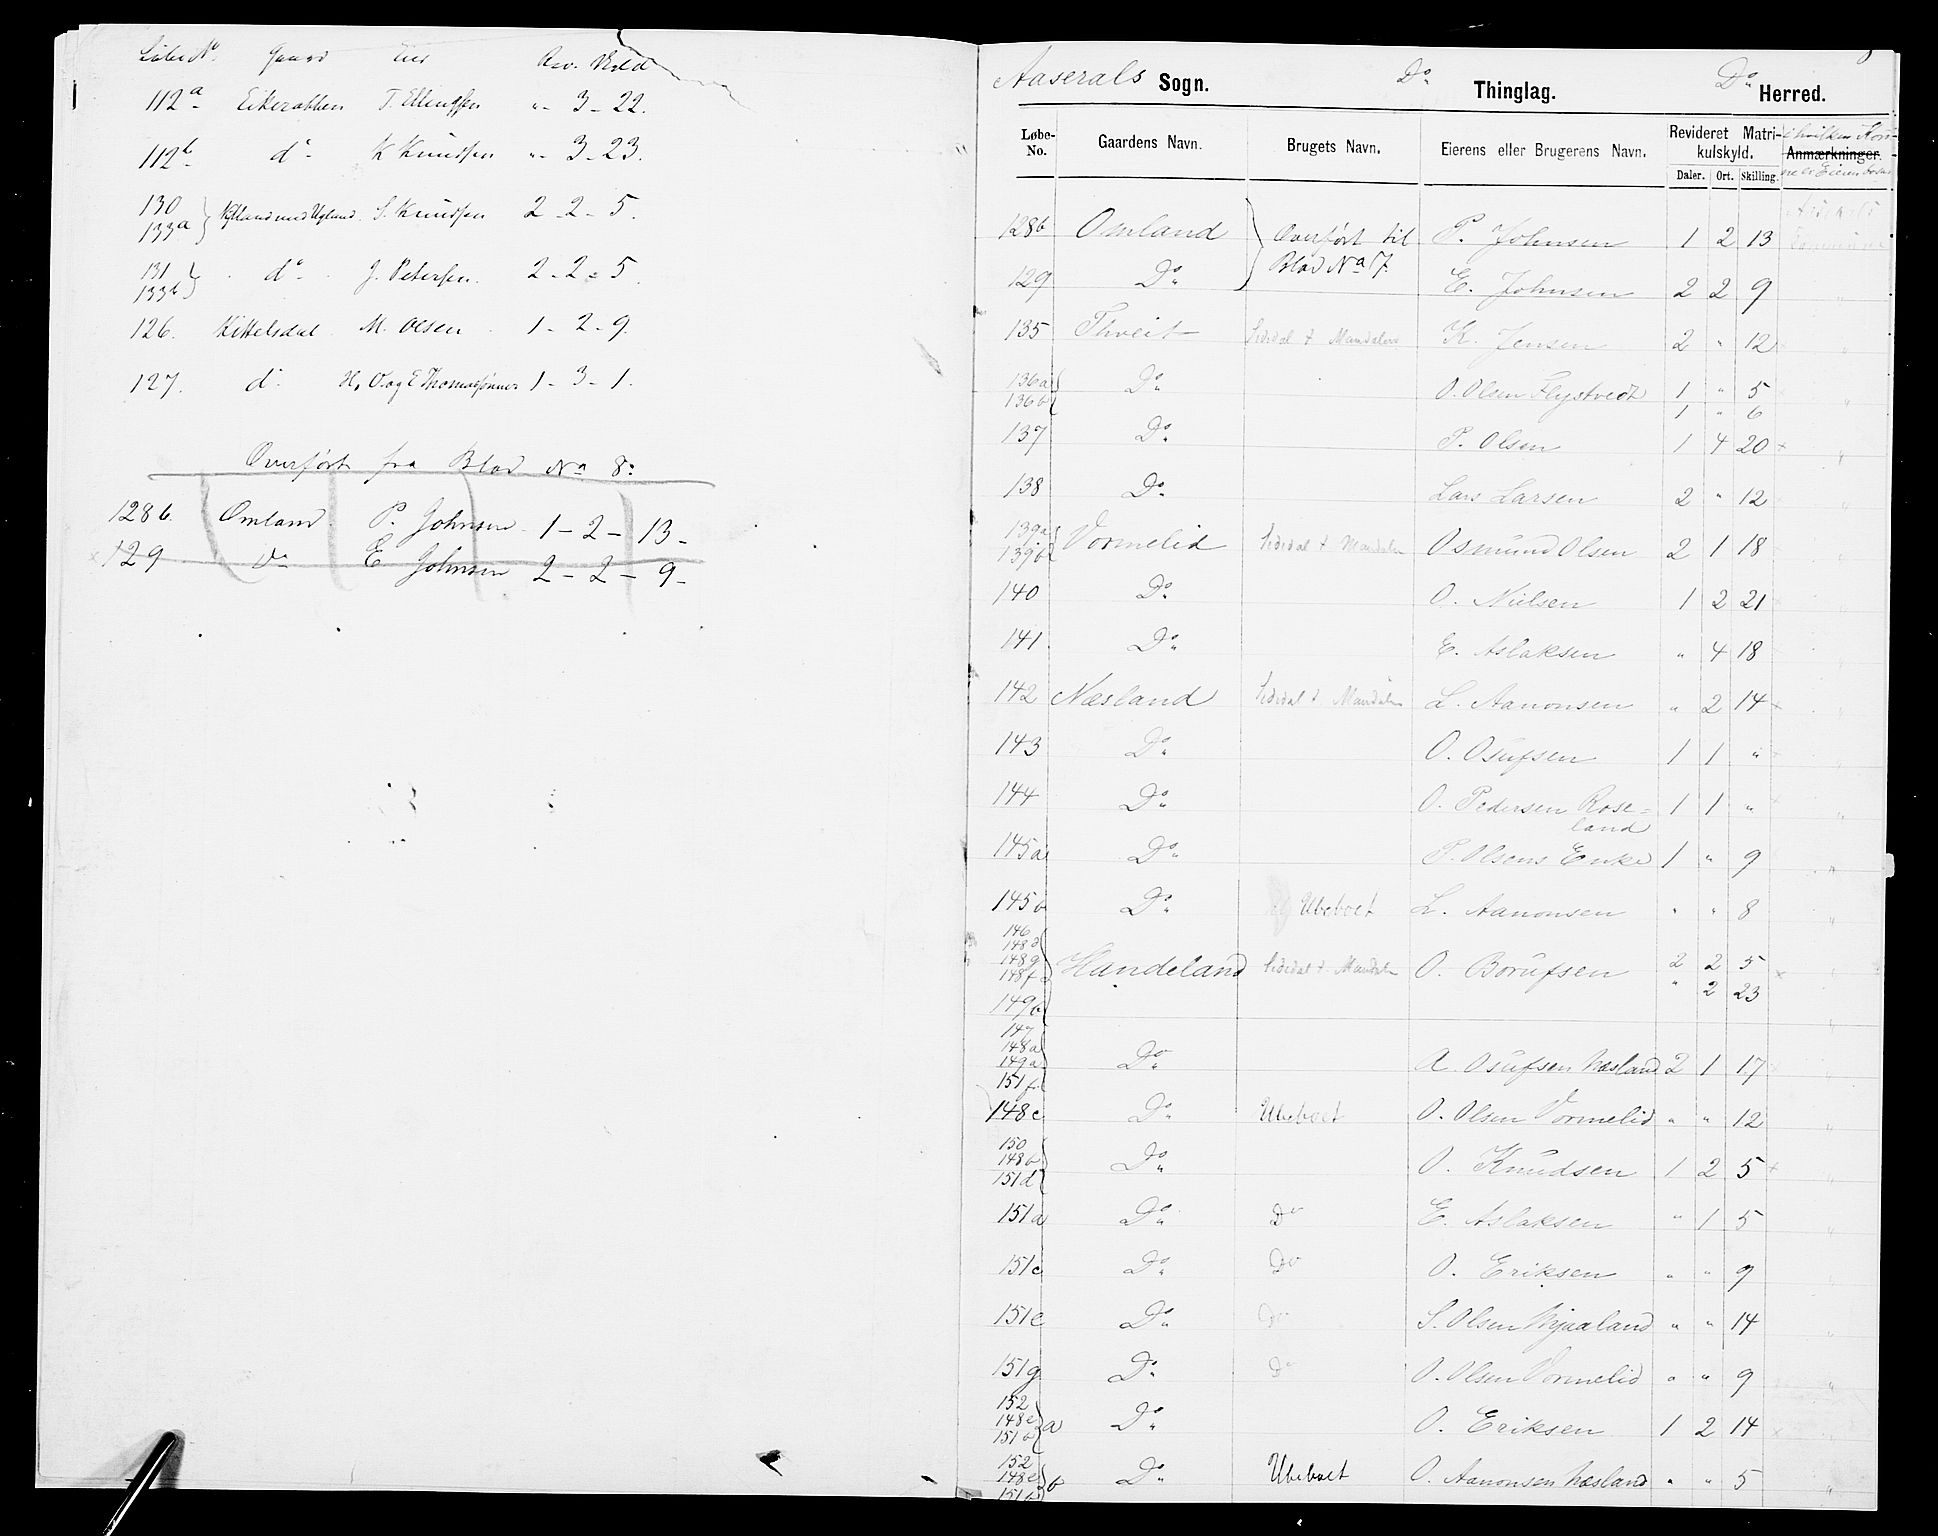 LøbeNo. Gaard Eier Rev. Skyld
112a Eikerabben T. Ellingsen " - 3 - 22.
112b do K Knudsen " - 3 - 23.
130
133a } Kylland med Ugland S. Knudsen 2 - 2 - 5.
131
133b } do J. Petersen 2 - 2 - 5.
126. Kittelsdal M. Olsen 1 - 2 - 9.
127. do H, O. og E Thomassønner 1 - 3 - 1.
Overført fra Blad No 8:
128b. Omland P. Johnsen 1 - 2 - 13 -
x 129 Do E Johnsen 2 - 2 - 9 -
8
Aaserals Sogn. Do Thinglag. Do Herred.
Løbe-No. Gaardens Navn. Brugets Navn. Eierens eller Brugerens Navn. Revideret Matrikulskyld. Anmærkninger.
Daler. Ort. Skilling.
128b Omland } Overført til P. Johnsen 1 2 13
129 Do } Blad No 7. E. Johnsen 2 2 9 "
135 Thveit Sidedal t Mandalen K. Jensen 2 " 12 "
136a
136b } Do O. Olsen Flystvedt 1 " 5 "
1 " 6
137 Do P. Olsen 1 4 20 x "
138 Do Lars Larsen 2 " 12 "
139a
139b } Vormelid Sidedal t Mandalen Osmund Olsen 2 1 18 "
140 Do O. Nielsen 1 2 21 "
141. Do E. Aslaksen " 4 18 "
142 Næsland Sidedal t. Mandalen L. Aanonsen " 2 14 x "
143 Do O. Osufsen 1 1 " "
144 Do O. Pedersen Rose= 1 1 " "
land
145a Do P. Olsens Enke 1 " 9 "
145b Do Ubeboet L. Aanonsen " " 8 "
146
148d
148g
148f } Handeland Sidedal t. Mandalen O. Borufsen 2 2 5 x
149b " 2 23 "
147
148a
149a } Do A. Osufsen Næsland 2 1 17 "
151f
148c Do Ubeboet O. Olsen Vormelid " " 12 "
150
148b } Do O. Knudsen 1 2 5 x "
151d
151a Do Do E. Aslaksen " 1 5 "
151c Do Do O. Eriksen " " 9 "
151e Do Do S. Olsen Mjaaland " " 14 "
151g Do Do O. Olsen Vormelid " " 9 "
152
148e } a Do O. Eriksen 1 2 14 x "
151b
152
148e } b Do Ubeboet O. Aanonsen Næsland " " 5 "
151b